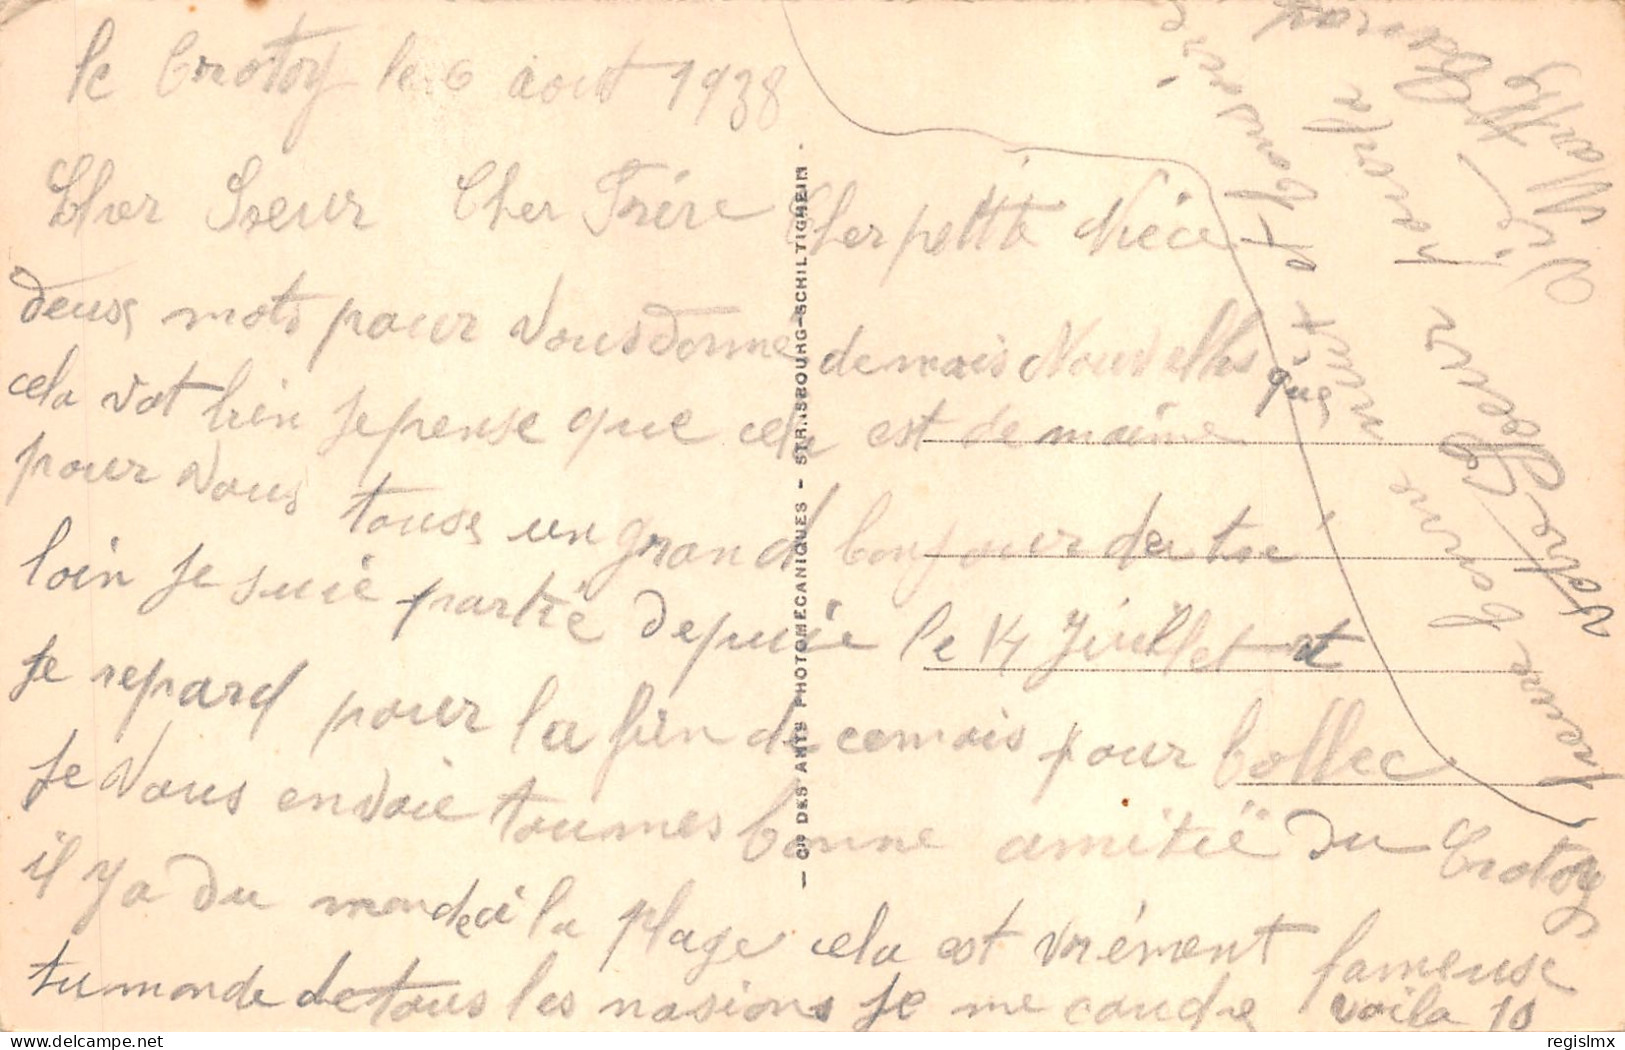 le Crotoy le 6 aout 1938
Cher Soeur Cher Frère Cher petite Nièce
deuse mots pour Vous donné de mais Nouvelles
cela vat bien je pense que cela est de maime
que
pour Vous touse un grand bonjour du tré
loin je suie partie depuie le 14 Juillet et
je repard pour la fien de ce mois pour bollec
je Vous envoie toumes bonne amitié du Crotoy
il y a du monde a la plage cela est vrément fameuse
tu monde de tous les nasions je me couche voila 10
heure bonne
nuit et bonsoiré
Votre Soeur
pour la
Vie
Marthe
Cie DES ARTS PHOTOMECANIQUES - STRASBOURG-SCHILTIGHEIM -
regislmx